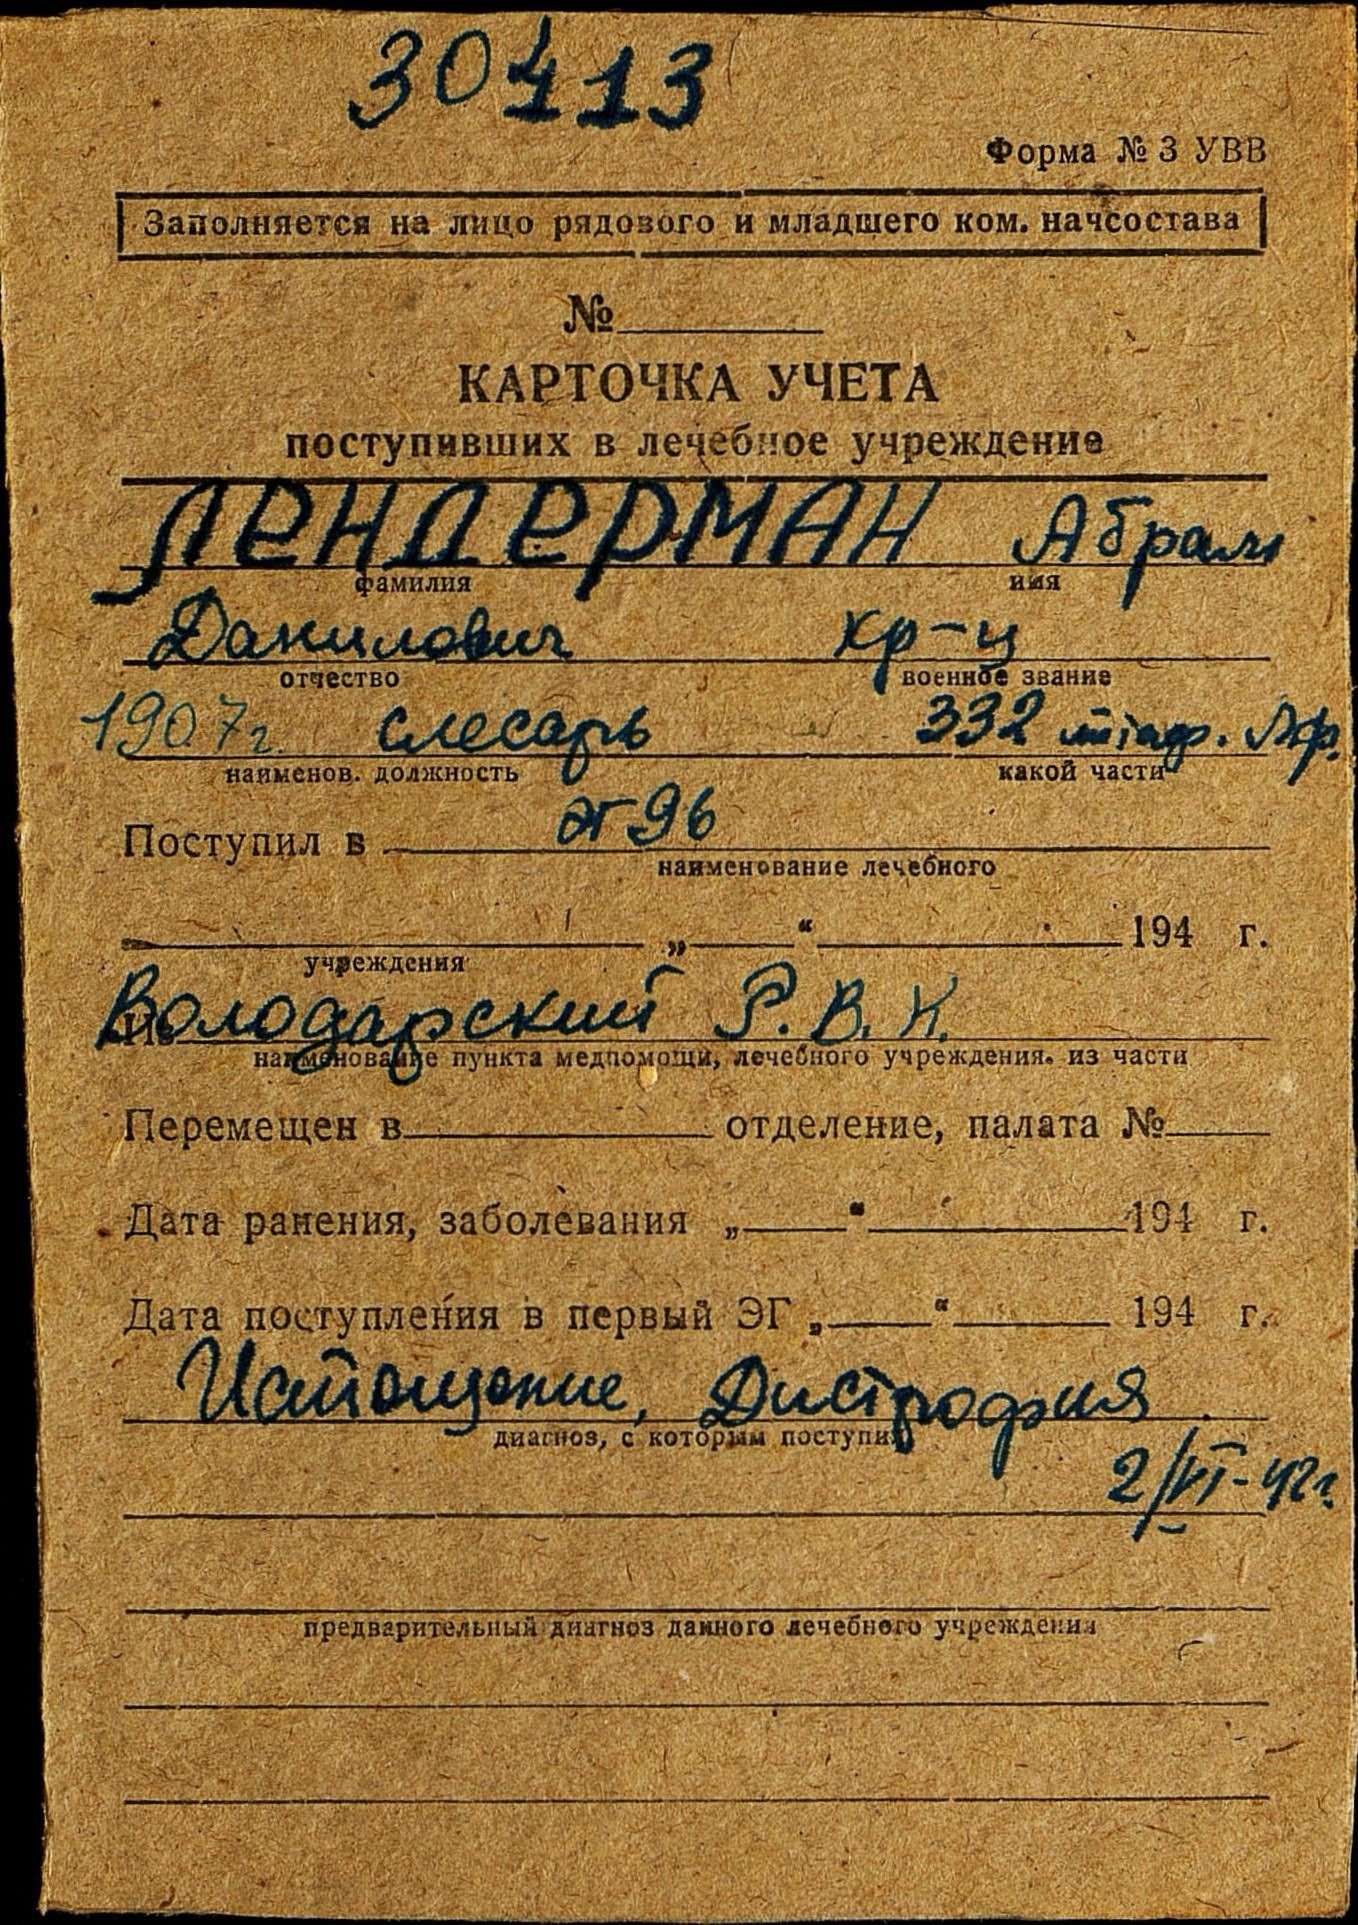 30413
Форма № 3 УВВ
Заполняется на лицо рядового и младшего ком. начсостава
№
КАРТОЧКА УЧЕТА
поступивших в лечебное учреждение
ЛЕНДЕРМАН Абрам
фамилия имя
Данилович кр-ц
отчество военное звание
1907г. слесарь 332 Лф.
наименов. должность какой части
Поступил в эг 96
наименование лечебного
„ “ 194 г.
учреждения
Из Володарский Р.В.К.
наименование пункта медпомощи, лечебного учреждения. из части
Перемещен в отделение, палата №
Дата ранения, заболевания „ “ 194 г.
Дата поступления в первый ЭГ „ “ 194 г.
Истощение, Дистрофия
диагноз, с которым поступил
2/VI-42г.
предварительный диагноз данного лечебного учреждения